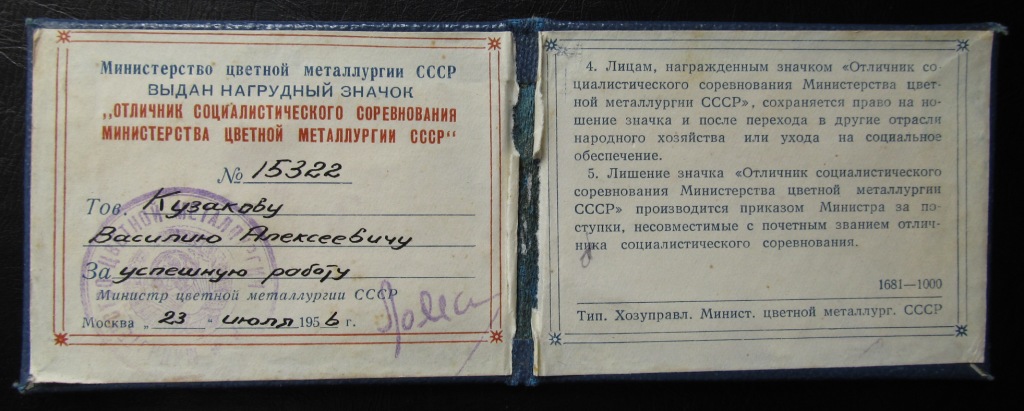 Министерство цветной металлургии СССР
ВЫДАН НАГРУДНЫЙ ЗНАЧОК
„ОТЛИЧНИК СОЦИАЛИСТИЧЕСКОГО СОРЕВНОВАНИЯ
МИНИСТЕРСТВА ЦВЕТНОЙ МЕТАЛЛУРГИИ СССР“
№ 15322
Тов. Кузакову
Василию Алексеевичу
За успешную работу
Министр цветной металлургии СССР
Москва „23“ июля 1956 г.
4. Лицам, награжденным значком «Отличник со-
циалистического соревнования Министерства цвет-
ной металлургии СССР», сохраняется право на но-
шение значка и после перехода в другие отрасли
народного хозяйства или ухода на социальное
обеспечение.
5. Лишение значка «Отличник социалистического
соревнования Министерства цветной металлургии
СССР» производится приказом Министра за по-
ступки, несовместимые с почетным званием отлич-
ника социалистического соревнования.
1681—1000
Тип. Хозуправл. Минист. цветной металлург. СССР